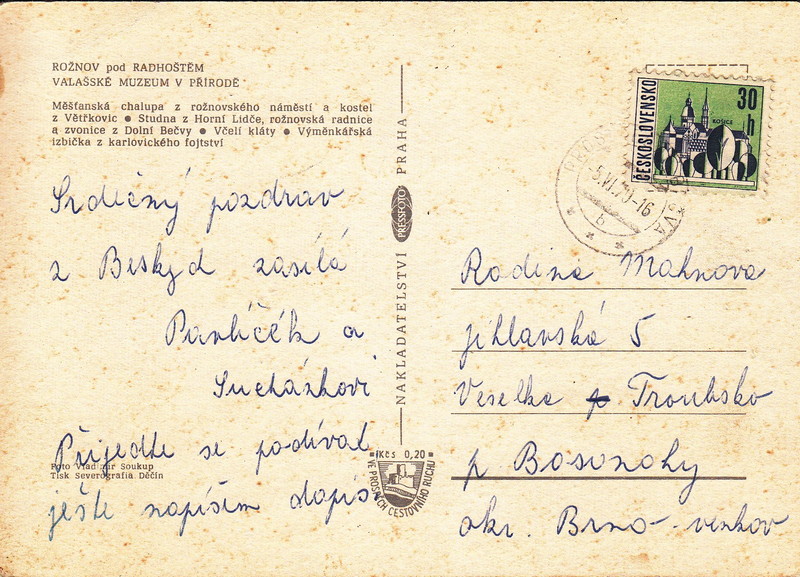 ROŽNOV pod RADHOŠTĚM
VALAŠSKÉ MUZEUM V PŘÍRODĚ
Měšťanská chalupa z rožnovského náměstí a kostel
z Větřkovic ● Studna z Horní Lidče, rožnovská radnice
a zvonice z Dolní Bečvy ● Včelí kláty ● Výměnkářská
izbička z karlovického fojtství
Srdečný pozdrav
z Beskyd zasílá
Pavlíček a
Sucházkovi
Přijedte se podívat
ještě napíšim dopis
Foto Vladimír Soukup
Tisk Severografia Děčín
NAKLADATELSTVÍ PRESSFOTO PRAHA
Kčs 0,20
VE PROSPĚCH CESTOVNÍHO RUCHU
ČESKOSLOVENSKO
30 h
KOŠICE
-5.VI.70-16
b
Rodina Mahnova
jihlavská 5
Veselka p Troubsko
p Bosonohy
okr. Brno-venkov